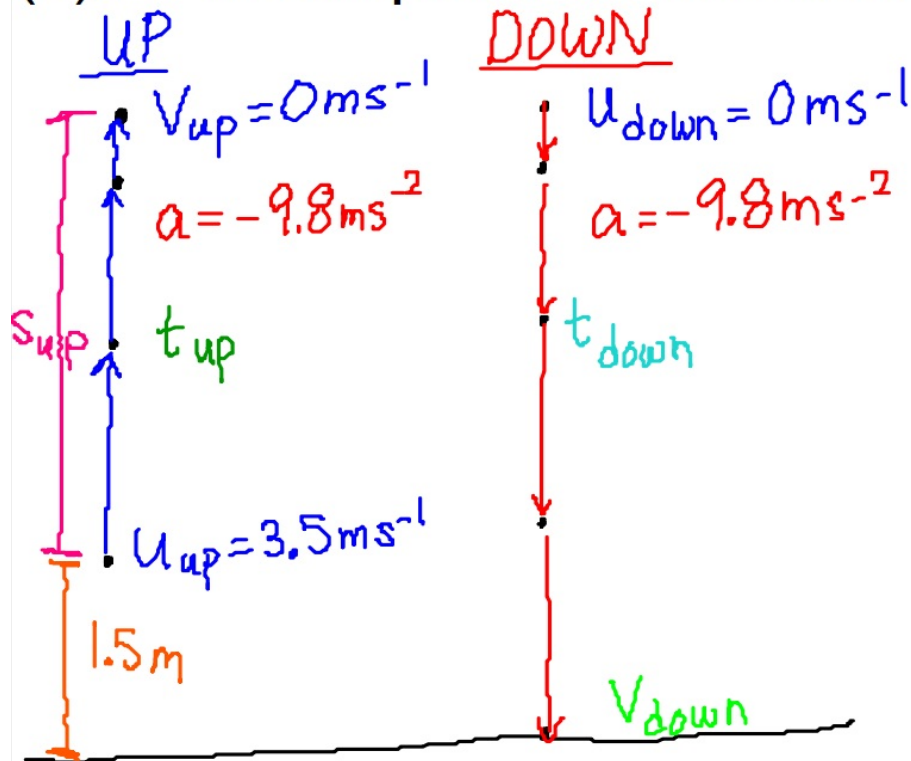 UP
V_up = 0 ms⁻¹
a = -9.8 ms⁻²
s_up
t_up
u_up = 3.5 ms⁻¹
1.5 m
DOWN
u_down = 0 ms⁻¹
a = -9.8 ms⁻²
t_down
V_down